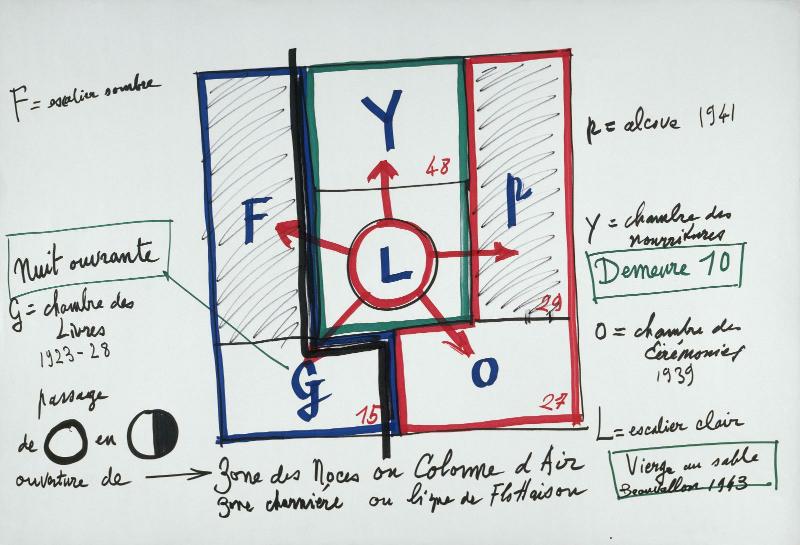 F = escalier sombre
Nuit ouvrante
G = chambre des
Livres
1923-28
passage
de O en
ouverture de
Y
48
F
L
p
29
G
15
O
27
zone des Noces ou Colonne d'Air
zone charnière ou ligne de Flottaison
p = alcove 1941
Y = chambre des
nourritures
Demeure 10
O = chambre des
Cérémonies
1939
L = escalier clair
Vierge au sable
Beauvallon 1943